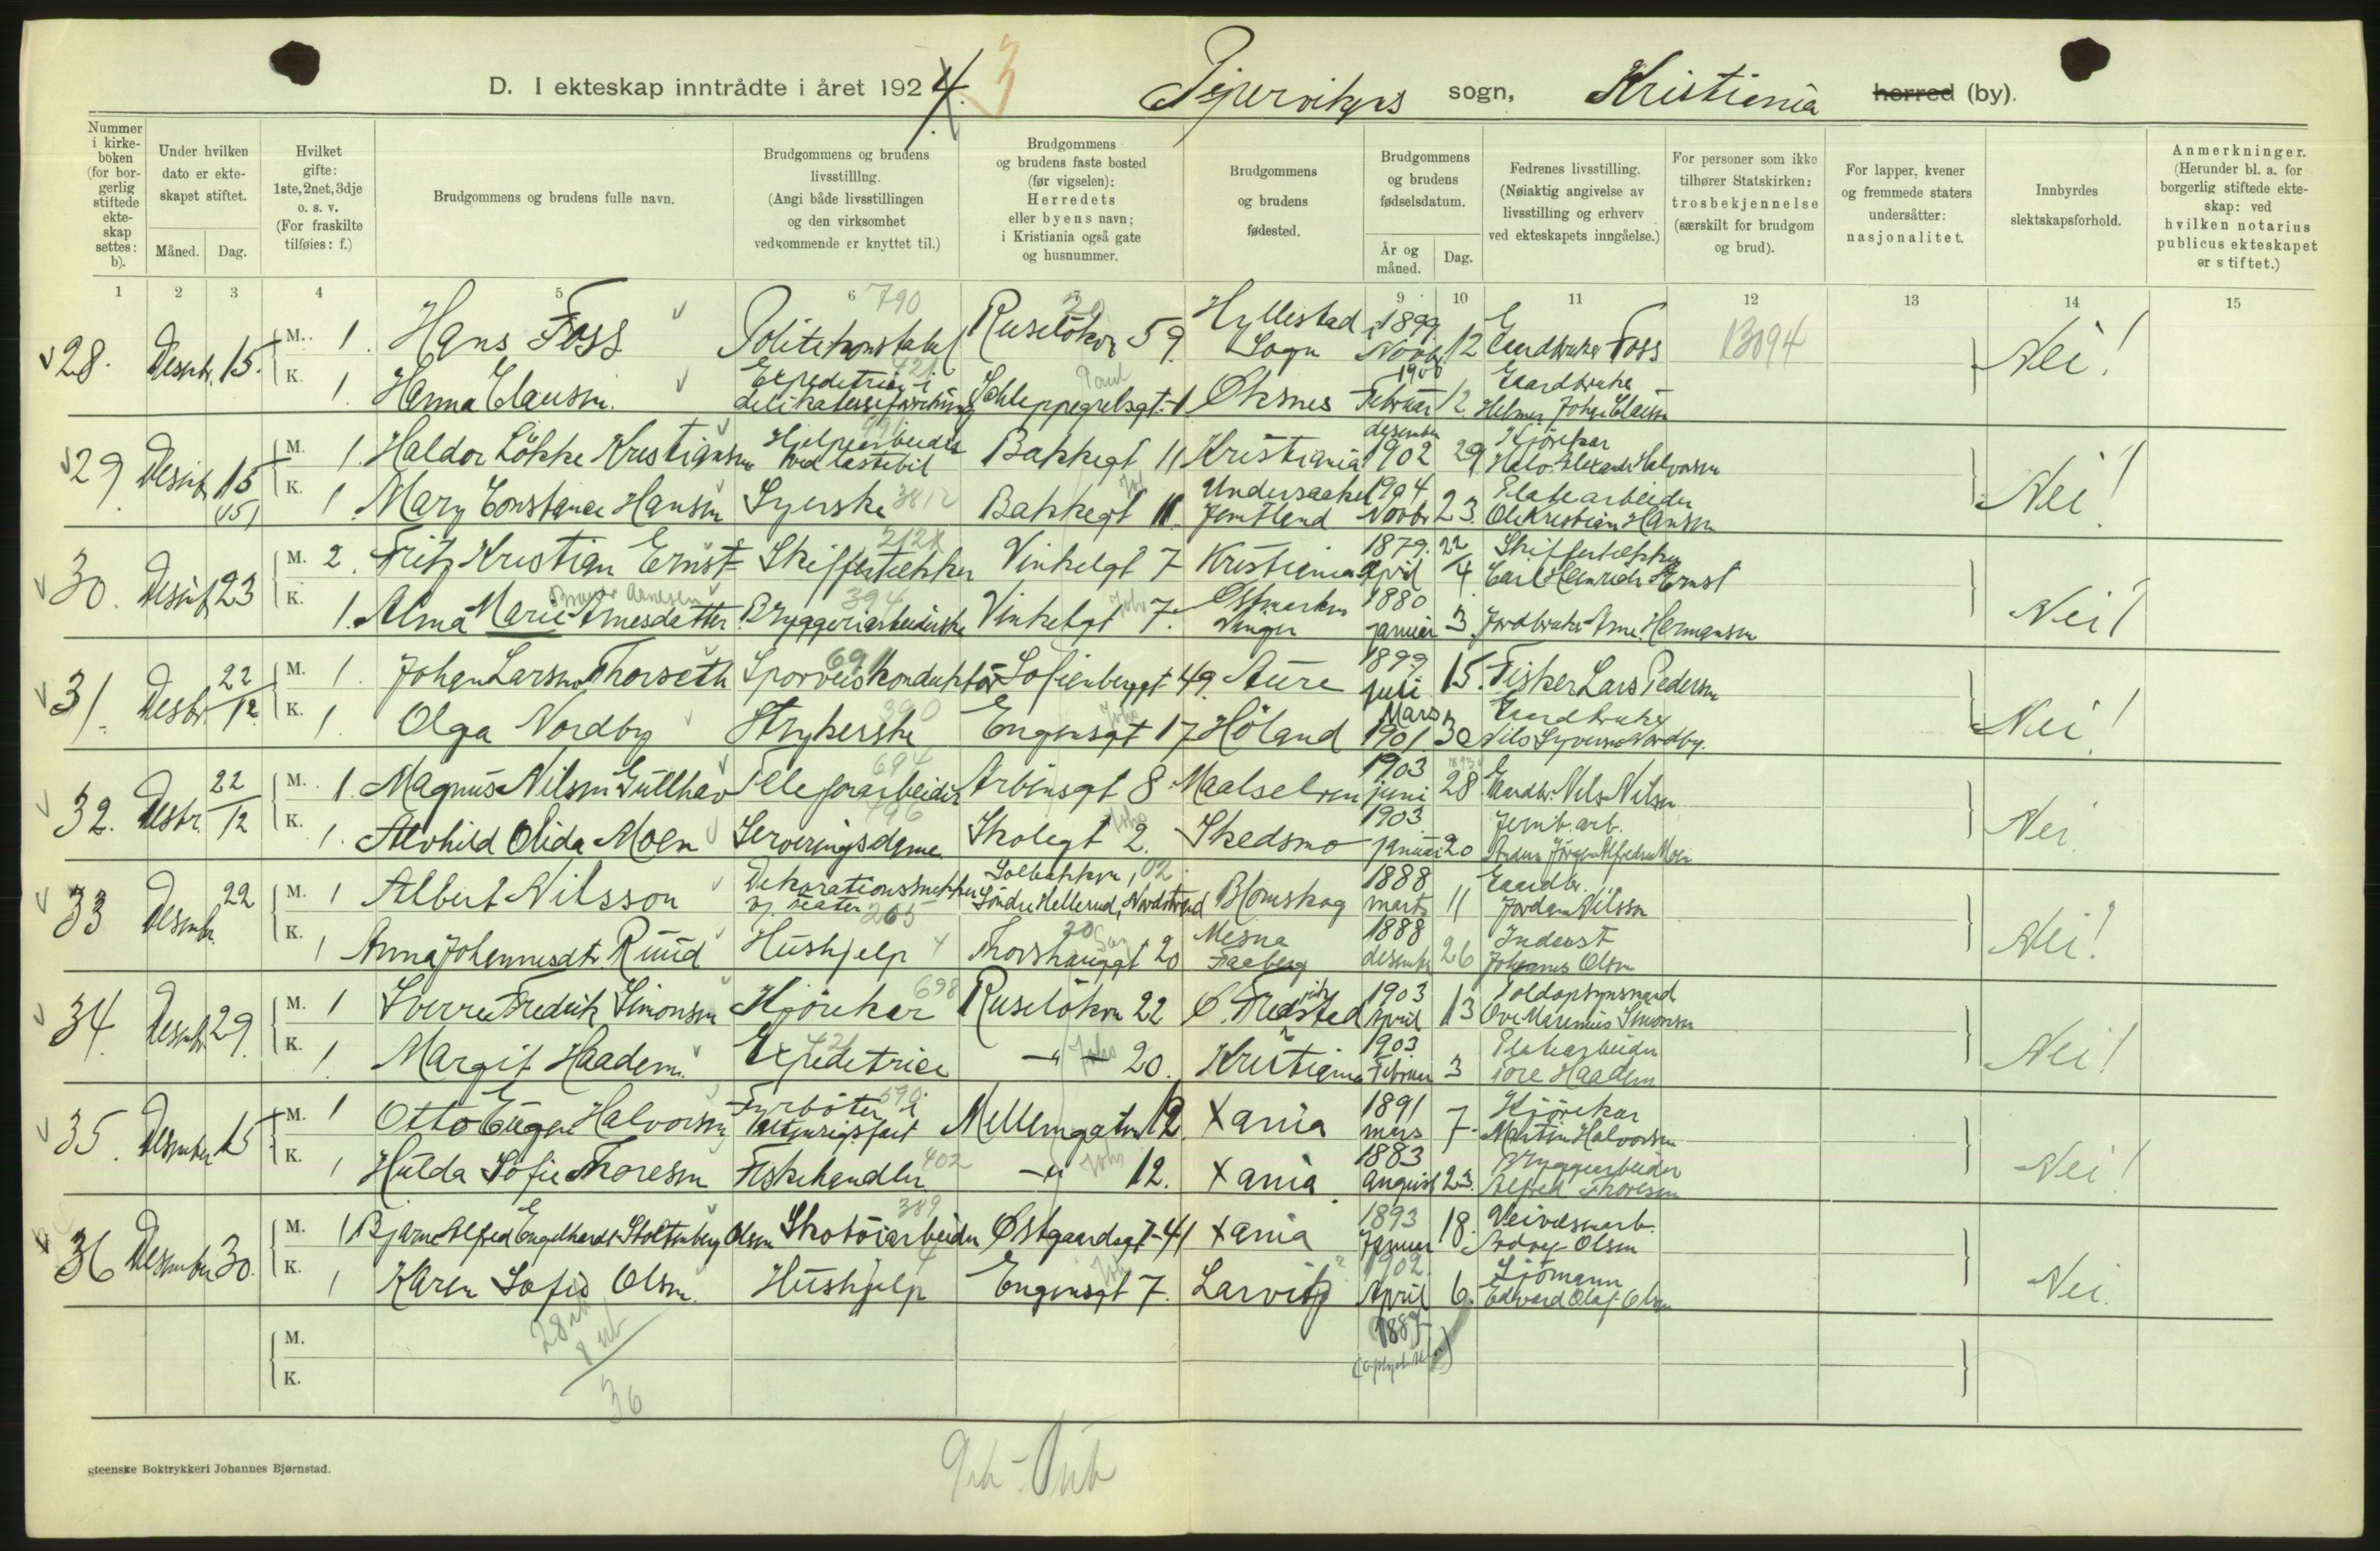 D. I ekteskap inntrådte i året 1924. 3 Pipervikens sogn, Kristiania herred (by).
Nummer i kirke-boken (for bor-gerlig stiftede ekte-skap settes: b).
Under hvilken dato er ekte-skapet stiftet.
Måned. Dag.
Hvilket gifte: 1ste, 2net, 3dje o. s. v. (For fraskilte tilføies: f.)
Brudgommens og brudens fulle navn.
Brudgommens og brudens livsstilling. (Angi både livsstillingen og den virksomhet vedkommende er knyttet til.)
Brudgommens og brudens faste bosted (før vigselen): Herredets eller byens navn; i Kristiania også gate og husnummer.
Brudgommens og brudens fødested.
Brudgommens og brudens fødselsdatum.
År og måned. Dag.
Fedrenes livsstilling. (Nøiaktig angivelse av livsstilling og erhverv ved ekteskapets inngåelse.)
For personer som ikke tilhører Statskirken: trosbekjennelse (særskilt for brudgom og brud).
For lapper, kvener og fremmede staters undersåtter: nasjonalitet.
Innbyrdes slektskapsforhold.
Anmerkninger. (Herunder bl. a. for borgerlig stiftede ekte-skap: ved hvilken notarius publicus ekteskapet er stiftet.)
1 2 3 4 5 6 9 10 11 12 13 14 15
28. Desbr. 15. M. 1. Hans Foss Politikonstabel 790 Ruselökvn 59. Hyllestad i Sogn 1899 Novbr 12 Gaardbruker Foss 13094 Nei!
K. 1. Hanna Clausen. Expeditrice i delikatesseforretning 421 Schleppegrelsgt. 1 Øksnes 1900 Februar 12. Gaardbruker Helmer Johan Clausen
29. Desbr 15 (15) M. 1. Haldor Lökke Kristiansen Hjelpearbeider ved lastebil 991 Bakkegt 11 Kristiania desember 1902 29 Kjörekar Halv. Alexander Halvorsen Nei!
K. 1. Mary Constance Hansen Syerske 3812 Bakkegt 11. Undersaaker Jemtland 1904 Novbr 23. Platearbeider Ole Kristian Hansen
30. Desbr 23 M. 2. Fritz Kristian Ernst Skiffertekker 212 Vinkelgt 7 Kristiania 1879. April 22/4 Skiffertekker Carl Heinrich Ernst Nei!
K. 1. Alma Marie Arnesdatter Bryggeriarbeiderske 394 Vinkelgt 7. Østmarken Vinger 1880 januar 3. Jordbruker Arne Hermansen
31. Desbr. 22/12. M. 1. Johan Larsen Thorseth Sporveiskonduktör 691 Sofienberggt 49. Aure 1899 juli 15. Fisker Lars Pedersen Nei!
K. 1. Olga Nordby Strykerske 390 Engensgt 17 Höland Mars 1901 30 Gaardbruker Nils Syversen Nordby.
32. Desbr. 22/12 M. 1. Magnus Nilsen Gullhav Telefonarbeider 694 Arbinsgt 8. Maalselven 1903 juni 28 Gaardbr. Nils Nilsen Nei
K. 1. Alvhild Olida Moen Serveringsdame 796 Skolegt 2. Skedsmo 1903 januar 20 Jernb. arb. Anders Jörgen Alfredsen Moen
33 Desembr. 22 M. 1 Albert Nilsson Dekorationssnekker v. teater 265 Solbakken, 02 Söndre Hellerud, Nordstrand Blomskog 1888 marts 11 Gaardbr. Jordan Nilsson Nei!
K. 1 Anna Johannesdtr. Ruud Hushjelp 4 Thorshauggt 20 Mesna Faaberg 1888 desember 26 Inderst Johannes Olsen
34. Desembr 29. M. 1 Sverre Fredrik Simonsen Kjörekar 698 Ruselökvn 22 Ø. Fredrikstad 1903 April 13 Toldopsynsmand Ove Marenius Simonsen Nei!
K. 1. Margit Haadem. Expeditrice 421 — " — 20. Kristiania 1903 Februar 3 Platearbeider Tore Haadem
35. Desember 15 M. 1 Otto Eugen Halvorsen Fyrböter i 590 Mellemgaten 12. Xania 1891 mars 7. Kjörekar Martin Halvorsen Nei!
K. 1 Hulda Sofie Thoresen Fiskehandler 402 — " 12. Xania 1883 august 23. Bryggearbeider Alfred Thoresen
36 Desember 30. M. 1 Bjarne Alfred Engelhardt Stoltenberg Olsen Skotöiarbeider 389 Østgaardsgt 41 Xania 1893 Januar 18. Veivesenarb. Olsen Nei.
K. 1 Karen Sofie Olsen. Hushjelp 4 Engensgt 7. Larvik 1902. April 6. Sjömann Edvard Olaf Olsen
M.
K.
1887
28
8
36
steenske Boktrykkeri Johannes Bjørnstad.